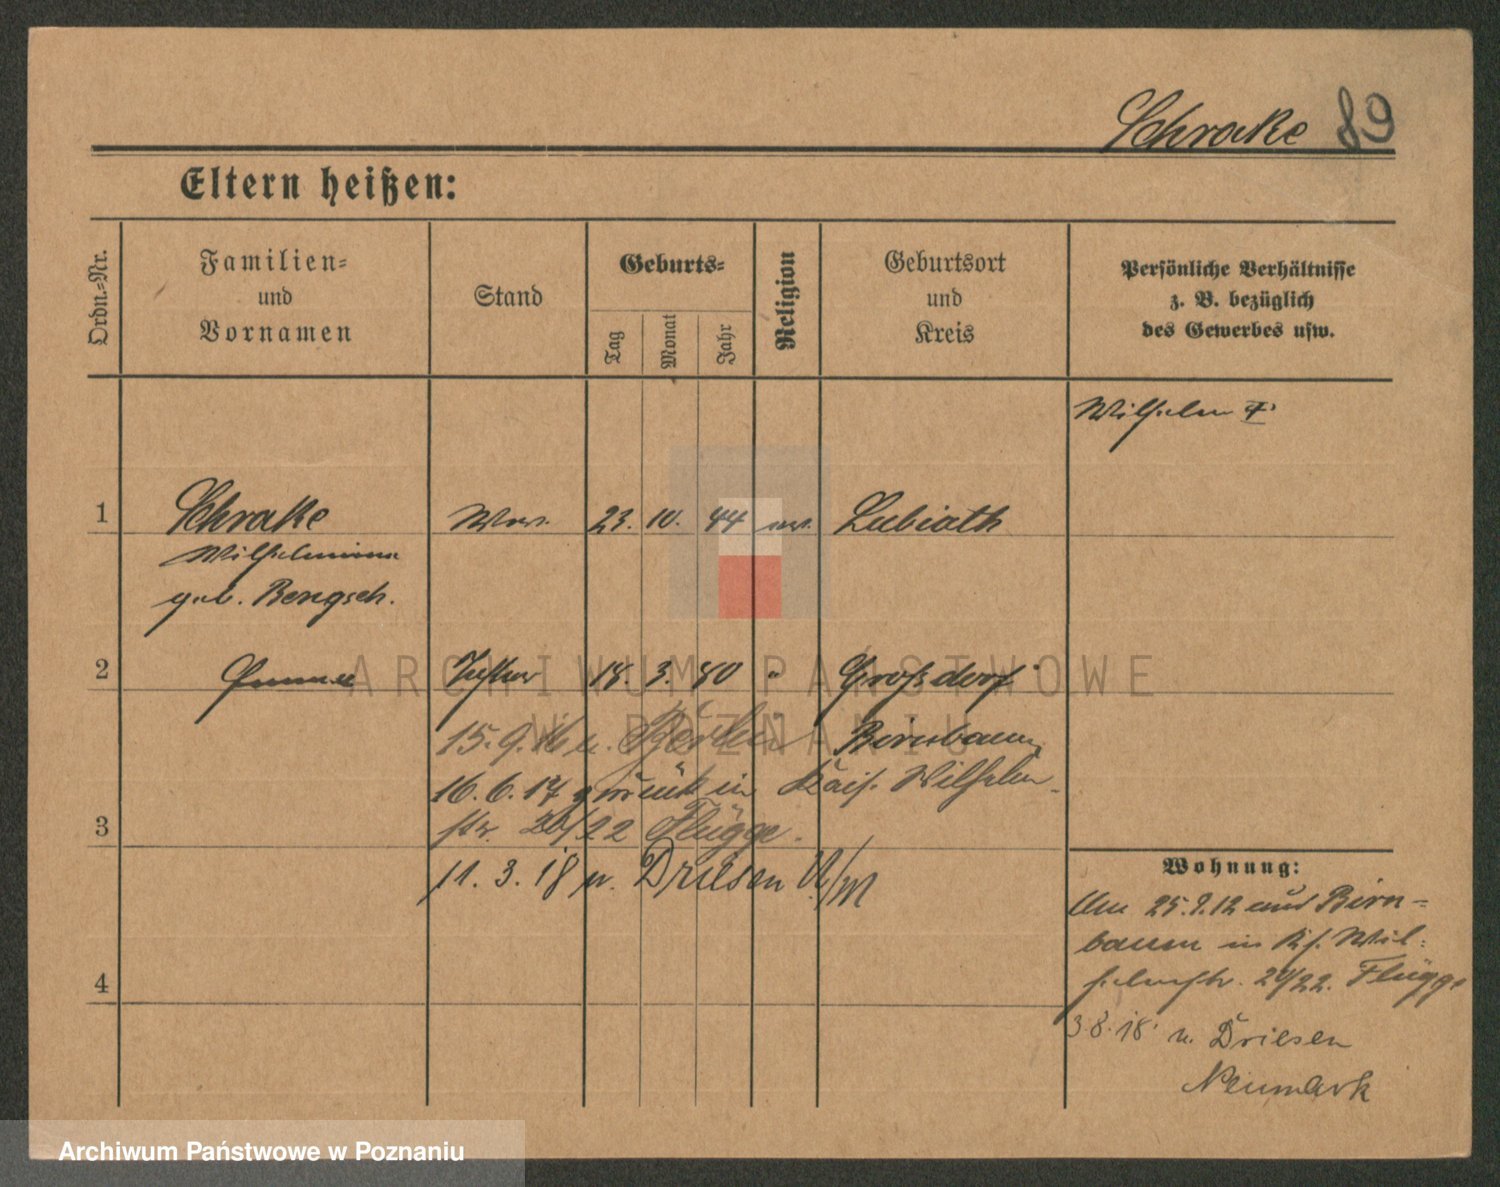 Schrake 89
Eltern heißen:
Ordn.-Nr.
Familien-
und
Vornamen
Stand
Geburts-
Tag
Monat
Jahr
Religion
Geburtsort
und
Kreis
Persönliche Verhältnisse
z. B. bezüglich
des Gewerbes usw.
Wilhelm †
1 Schrake Wwe. 23. 10. 44 ev. Lubiath
Wilhelmine
geb. Bengsch.
2 Tochter 18. 3. 80 " Großdorf
15. 9. 16 n. Berlin Birnbaum
16. 6. 17 zurück in Kais. Wilhelm-
3 str. 20/22 Flügge.
11. 3. 18 n. Driesen N/M
4
Wohnung:
Am 25. 9. 12 aus Birn-
baum in Ks. Wil-
helmstr. 20/22. Flügge
3. 8. 18. n. Driesen
Neumark
ARCHIWUM PAŃSTWOWE
W POZNANIU
Archiwum Państwowe w Poznaniu